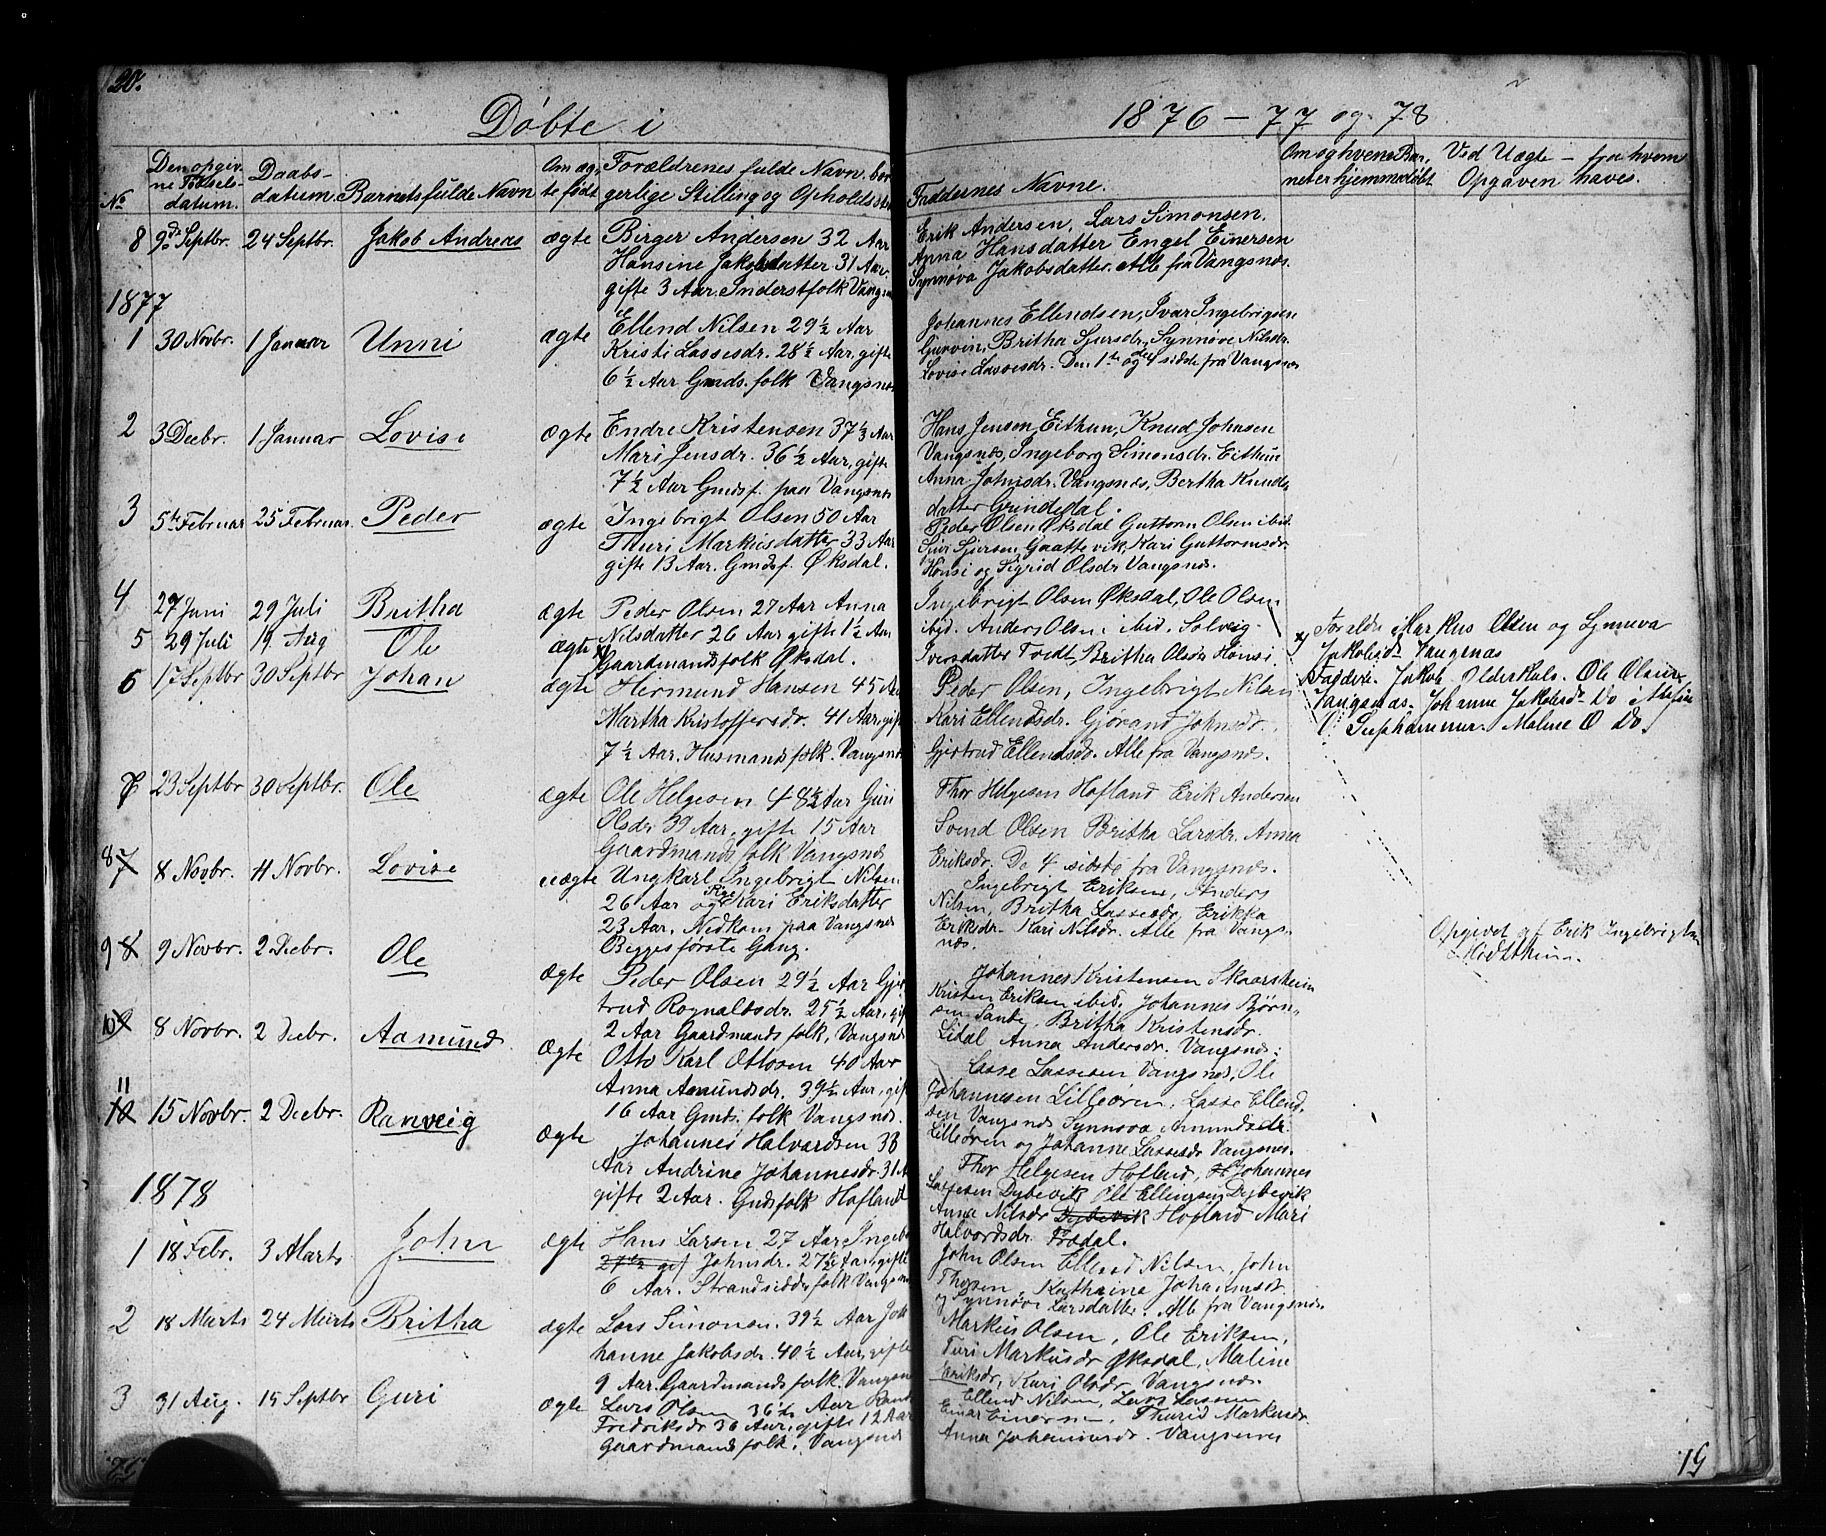 20.
Döbte i
1876 – 77 og 78
No
Den opgiv-
ne Fødsels-
datum.
Daabs-
datum.
Barnets fulde Navn
Om æg-
te født
Forældrenes fulde Navn, bor-
gerlige Stilling og Opholdsst
Faddernes Navne.
Om og hvem Bar-
net er hjemmedøbt
Ved Uægte – fra hvem
Opgaven haves.
8 9de Septbr. 24 Septbr. Jakob Andreas ægte Birger Andersen 32 Aar
Hansine Jakobsdatter 31 Aar
gifte 3 Aar. Inderstfolk Vangsn
Erik Andersen, Lars Simonsen.
Anna Hansdatter Engel Einersen
Synnøva Jakobsdatter. Alle fra Vangsnæs.
1877
1 30 Novbr. 1 Januar Unni ægte Ellend Nilsen 29½ Aar
Kristi Lassesdr. 28½ Aar, gifte
6½ Aar Gmds. folk Vangsnæs
Johannes Ellendsen, Ivar Ingebrigsen
Gurvin, Britha Sjursdr, Synnøve Nilsdr.
Lovise Lassesdr. Den 1ste og de 4 sidste fra Vangsnæs
2 3 Decbr. 1 Januar Lovise ægte Endre Kristensen 37⅓ Aar
Mari Jensdr. 36½ Aar, gifte
7½ Aar Gmdsf. paa Vangsnæs
Hans Jensen Eithun, Knud Johasen
Vangsnæs, Ingeborg Simonsdr. Eithun
Anna Johnsdr. Vangsnæs, Bertha Knuds
datter Grindedal.
3 5te Februar 25 Februar. Peder ægte Ingebrigt Olsen 50 Aar
Thuri Markusdatter 33 Aar
gifte 13 Aar. Gmdsf. Øksdal.
Peder Olsen Øksdal Guttorm Olsen ibid.
Sjur Sjursen, Gaattevik, Kari Guttormsdr.
Hønsi og Sigrid Olsdr Vangsnæs.
4 27 Juni 29 Juli Britha ægte Peder Olsen 27 Aar Anna
Nilsdatter 26 Aar gifte 1½ Aar
Gaardmandsfolk Øksdal.
Ingebrigt Olsen Øksdal, Ole Olsen
ibid. Anders Olsen ibid. Solveig
Iversdatter Tredt, Britha Olsdr Hønsi.
5 29 Juli 19 Aug Ole ægte
Foreldre Markus Olsen og Synneva
Jakobsdr Vangsnæs
Faddere. Jakob Olderskals. Ole Olsen
Vangsnæs. Johanne Jakobsdr Do
Malene O Do.
6 17 Septbr 30 Septbr Johan ægte Hermund Hansen 45 Aar
Martha Kristoffersdr. 41 Aar, gifte
7½ Aar. Husmandsfolk. Vangsnæs
Peder Olsen, Ingebrigt Nilsen
Kari Ellendsdr. Gjørand Johnsdr.
Gjertrud Ellendsdr. Alle fra Vangsnæs.
7 23 Septbr 30 Septbr. Ole ægte Ole Helgesen 48½ Aar Guri
Olsdr 39 Aar, gifte 15 Aar
Gaardmandsfolk Vangsnæs
Thor Helgesen Hofland Erik Andersen
Svend Olsen Britha Larsdr. Anna
Eriksdr. De 4 sidste fra Vangsnæs.
8 7 8 Novbr. 11 Novbr. Lovise uægte Ungkarl Ingebrigt Nilsen
26 Aar og Pige Kari Eriksdatter
23 Aar, Nedkom paa Vangsnæs
Begges første Gang.
Ingebrigt Eriksen, Anders
Nilsen, Britha Lassesdr, Erikka
Eriksdr. Kari Nilsdr. Alle fra Vangs-
næs.
Opgivet af Erik Ingebrigtsen
9 8 9 Novbr. 2 Decbr. Ole ægte Peder Olsen 29½ Aar Gjer
trud Rognaldsdr. 25½ Aar, gif
2 Aar Gaardmandsfolk, Vangsnæs
Johannes Kristensen Skaarsheim
Kristen Eriksen ibid, Johannes Bjørn-
sen Tande, Britha Kristensdr.
Lidal Anna Andersdr. Vangsnæs.
10 9 8 Novbr. 2 Decbr. Aamund ægte Otto Karl Ottosen 40 Aar
Anna Aamundsdr. 39½ Aar, gif
16 Aar Gmds. folk Vangsnæs.
Lasse Lassesen Vangsnæs, Ole
Johannesen Lilleøren, Lasse Ellend-
sen Vangsnæs Synnøva Amundsdr.
Lilleøren og Johanne Lassesdr Vangsnæs.
11 10 15 Novbr. 2 Decbr. Ranveig ægte Johannes Halvardsen 33
Aar Andrine Johannesdr. 31 A
gifte 2 Aar. Gmdsfolk Hofland
Thor Helgesen Hofland, Johannes
Lassesen Dybevik Ole Ellingsen Dybevik
Anna Nilsdr Dybevik Hofland Mari
Halvordsdr. Trædal.
1878
1 18 Febr. 3 Marts John ægte Hans Larsen 27 Aar Ingeb
27½ gif Johnsdr. 27½ Aar, gifte
6 Aar. Strandsidderfolk Vangsnæs
John Olsen Ellend Nilsen, John
Thorsen, Kathrine Johannesdr
og Synnøve Larsdatter. Alle fra Vangsnæs.
2 18 Marts 24 Marts Britha ægte Lars Simonsen. 39½ Aar Joh
hanne Jakobsdr. 40½ Aar, gifte
9 Aar. Gaardmandsfolk. Vangsnæs
Markus Olsen, Ole Eriksen,
Turi Markusdr Øksdal, Maline
Eriksdr, Kari Olsdr, Vangsnæs.
3 31 Aug. 15 Septbr Guri ægte Lars Olsen 36½ Aar Rand
Fredriksdr 36 Aar, gifte 12 Aar
Gaardmandsfolk. Vangsnæs
Ellend Nilsen, Lars Lassen
Einar Einersen, Thurid Markusdr.
Anna Johannesdr. Vangsnæs
19